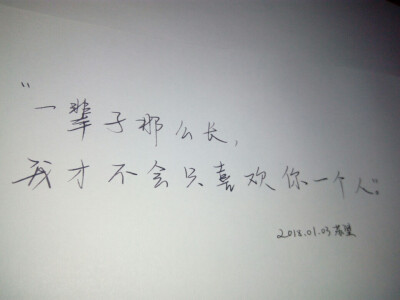 “一辈子那么长，
我才不会只喜欢你一个人”。
2018.01.03